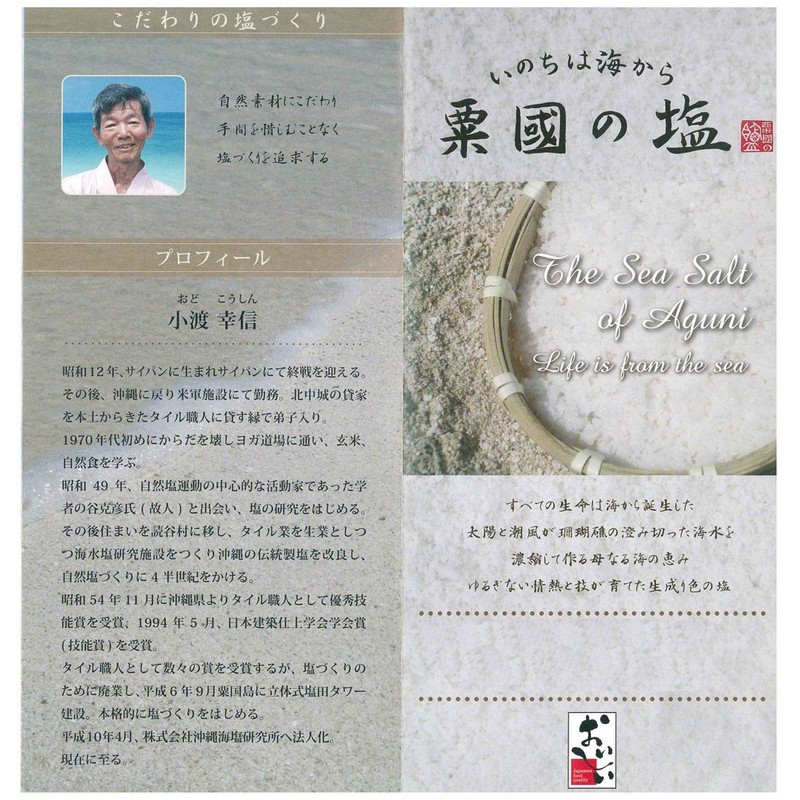 こだわりの塩づくり
自然素材にこだわり
手間を惜しむことなく
塩づくりを追求する
プロフィール
おど こうしん
小渡 幸信
昭和12年、サイパンに生まれサイパンにて終戦を迎える。
その後、沖縄に戻り米軍施設にて勤務。北中城の貸家
を本土からきたタイル職人に貸す縁で弟子入り。
1970年代初めにからだを壊しヨガ道場に通い、玄米、
自然食を学ぶ。
昭和 49 年、自然塩運動の中心的な活動家であった学
者の谷克彦氏(故人)と出会い、塩の研究をはじめる。
その後住まいを読谷村に移し、タイル業を生業としつ
つ海水塩研究施設をつくり沖縄の伝統製塩を改良し、
自然塩づくりに4半世紀をかける。
昭和54年11月に沖縄県よりタイル職人として優秀技
能賞を受賞、1994 年 5 月、日本建築仕上学会学会賞
(技能賞)を受賞。
タイル職人として数々の賞を受賞するが、塩づくりの
ために廃業し、平成6年9月粟国島に立体式塩田タワー
建設。本格的に塩づくりをはじめる。
平成10年4月、株式会社沖縄海塩研究所へ法人化。
現在に至る。
いのちは海から
粟國の塩
粟國の
塩
The Sea Salt
of Aguni
Life is from the sea
すべての生命は海から誕生した
太陽と潮風が珊瑚礁の澄み切った海水を
濃縮して作る母なる海の恵み
ゆるぎない情熱と技が育てた生成り色の塩
おいしい
Japanese
food
quality